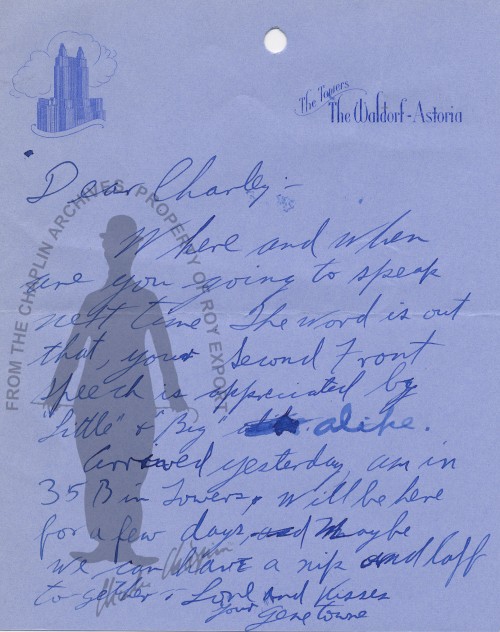 The Towers
The Waldorf-Astoria
Dear Charley:-
Where and when
are you going to speak
next time. The word is out
that, your Second Front
speech is appreciated by
"Little" & "Big" alike.
Arrived yesterday, am in
35B in Towers, will be here
for a few days, and Maybe
we can have a nip and laff
together. Love and Kisses
your Gene towne
FROM THE CHAPLIN ARCHIVES, PROPERTY OF ROY EXPORT